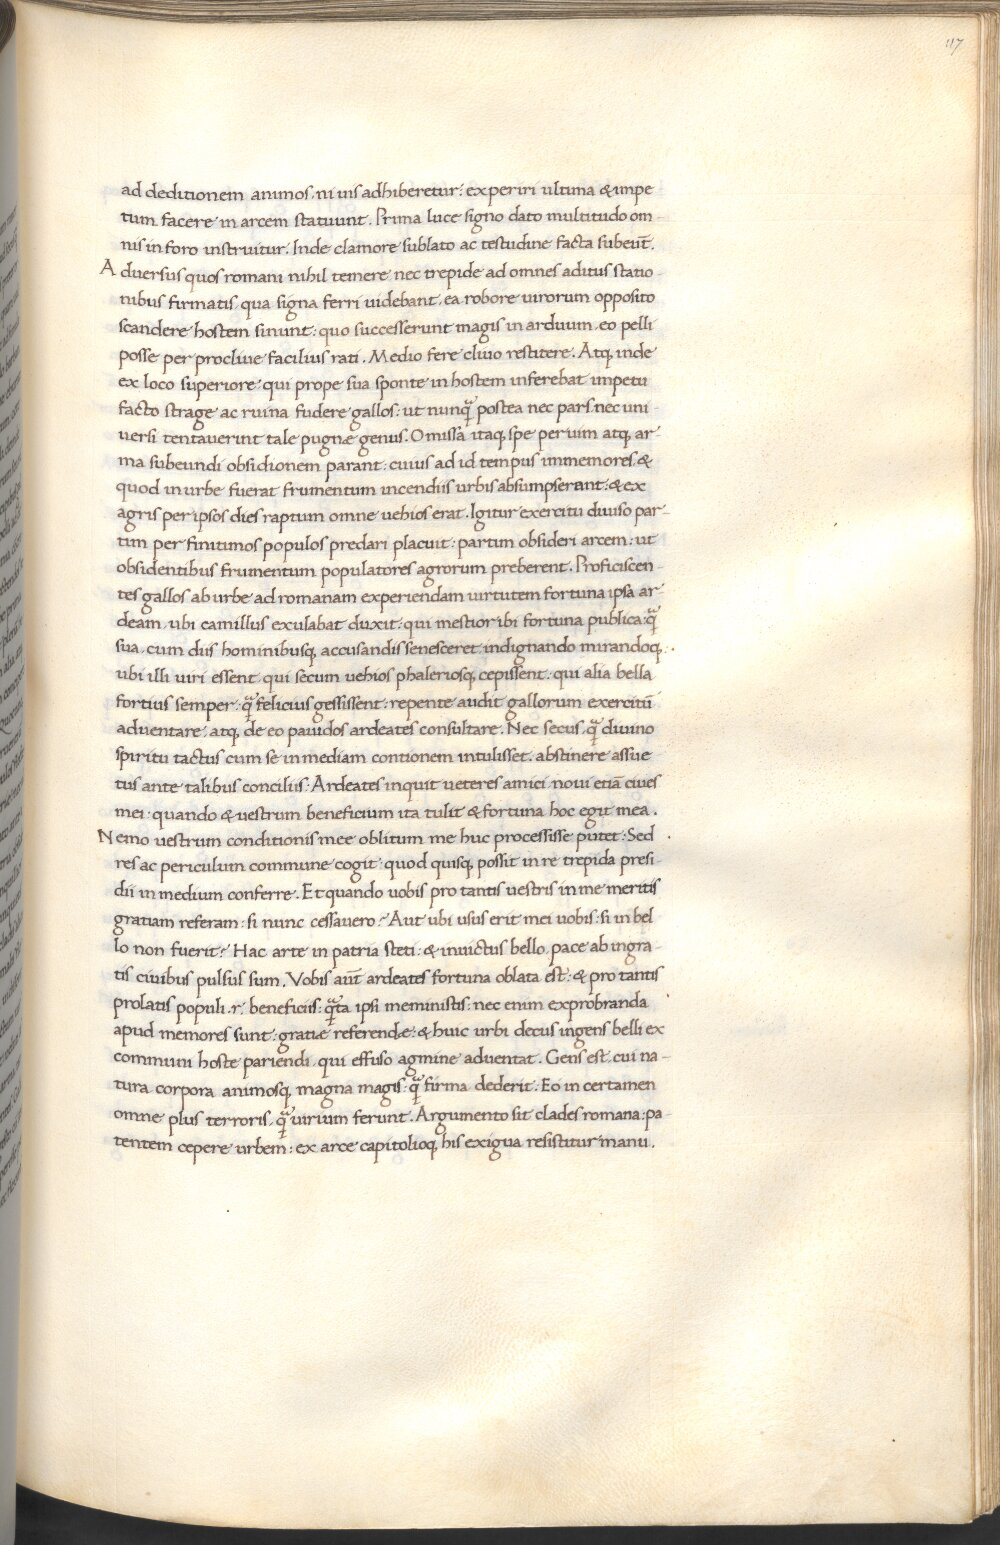 117
ad deditionem animos. ni uis adhiberetur: experiri ultima & impe
tum facere in arcem statuunt. Prima luce signo dato multitudo om-
nis in foro instruitur. Inde clamore sublato ac testudine facta subeūt.
Aduersus quos romani nihil temere nec trepide ad omnes aditus statio-
nibus firmatis qua signa ferri uidebant. ea robore uirorum opposito
scandere hostem sinunt: quo successerunt magis in arduum. eo pelli
posse per procliue facilius rati. Medio fere cliuo restitere. Atq; inde
ex loco superiore qui prope sua sponte in hostem inferebat impetu
facto strage ac ruina fudere gallos: ut nunq̄ postea nec pars nec uni-
uersi tentauerint tale pugnæ genus. Omissa itaq; spe per uim atq; ar-
ma subeundi obsidionem parant: cuius ad id tempus immemores. &
quod in urbe fuerat frumentum incendiis urbis absumpserant: & ex
agris per ipsos dies raptum omne uehios erat. Igitur exercitu diuiso par-
tim per finitimos populos predari placuit: partim obsideri arcem: ut
obsidentibus frumentum populatores agrorum preberent. Proficiscen-
tes gallos ab urbe ad romanam experiendam uirtutem fortuna ipsa ar-
deam. ubi camillus exulabat duxit: qui mestior ibi fortuna publica q̄
sua. cum diis hominibusq; accusandis senesceret indignando mirandoq;
ubi illi uiri essent qui secum uehios phaleriosq; cepissent: qui alia bella
fortius semper: q̄ felicius gessissent: repente audit gallorum exercitū
aduentare. atq; de eo pauidos ardeates consultare. Nec secus q̄ diuino
spiritu tactus cum se in mediam contionem intulisset. abstinere assue
tus ante talibus conciliis: Ardeates inquit ueteres amici noui etiā ciues
mei: quando & uestrum beneficium ita tulit & fortuna hoc egit mea.
Nemo uestrum conditionis mee oblitum me huc processisse putet: Sed
res ac periculum commune cogit: quod quisq; possit in re trepida presi-
dii in medium conferre. Et quando uobis pro tantis uestris in me meritis
gratiam referam: si nunc cessauero? Aut ubi usus erit mei uobis: si in bel
lo non fuerit? Hac arte in patria steti: & inuictus bello. pace ab ingra-
tis ciuibus pulsus sum. Vobis aūt ardeates fortuna oblata est: & pro tantis
prolatis populi .r. beneficiis: q̄ta ipsi meministis: nec enim exprobranda
apud memores sunt: gratiæ referendæ: & huic urbi decus ingens belli ex
communi hoste pariendi. qui effuso agmine aduentat. Gens est. cui na-
tura corpora animosq; magna magis: q̄ firma dederit: Eo in certamen
omne plus terroris. q̄ uirium ferunt. Argumento sit clades romana: pa-
tentem cepere urbem: ex arce capitolioq; his exigua resistitur manu.